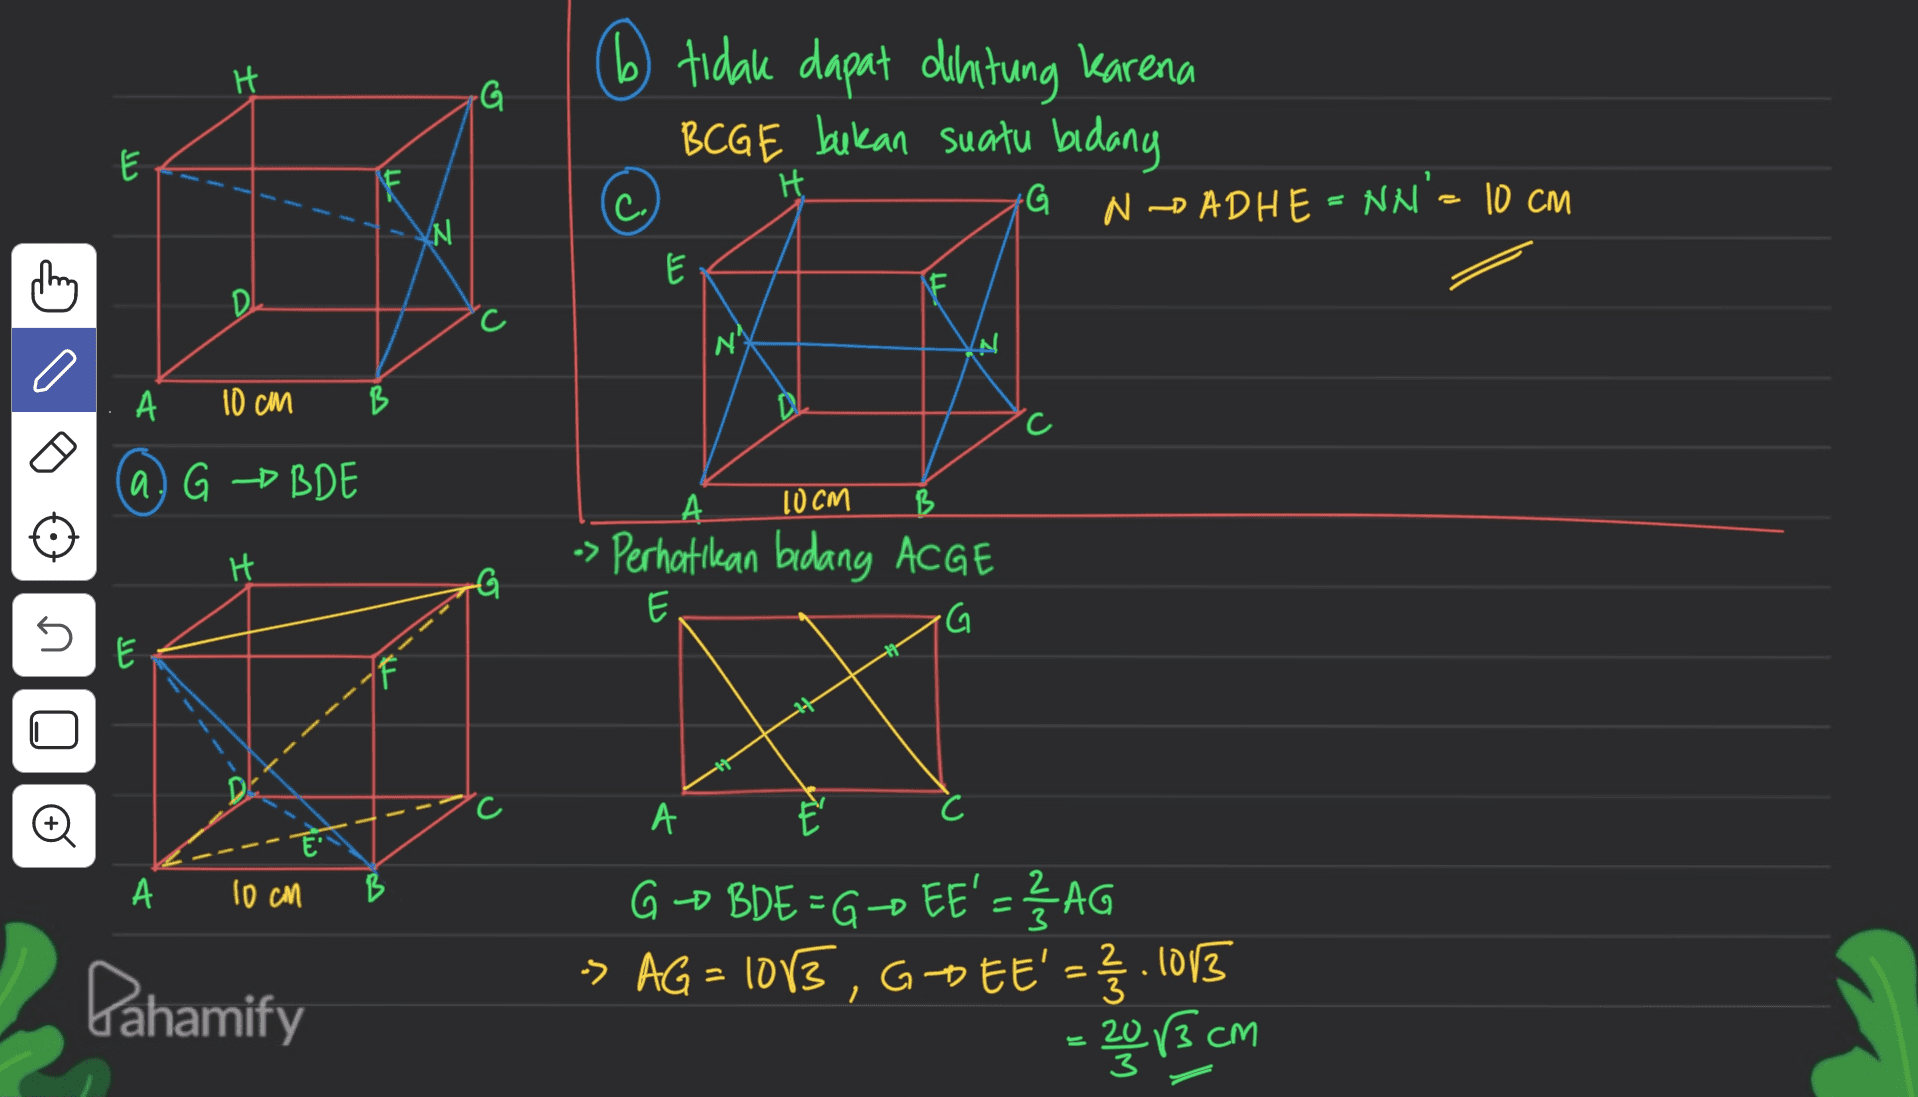 H
G
E
F
N
D
C
A
10 cm
B
a. G → BDE
H
G
E
F
D
C
E'
A
10 cm
B
b tidak dapat dihitung karena
BCGE bukan suatu bidang
c.
H
G
N → ADHE = NN' = 10 cm
E
F
N'
N
D
C
A
10 cm
B
-> Perhatikan bidang ACGE
E
G
A
E'
C
G → BDE = G → EE' = 2/3 AG
-> AG = 10√3 , G → EE' = 2/3 . 10√3
= 20/3 √3 cm
Pahamify